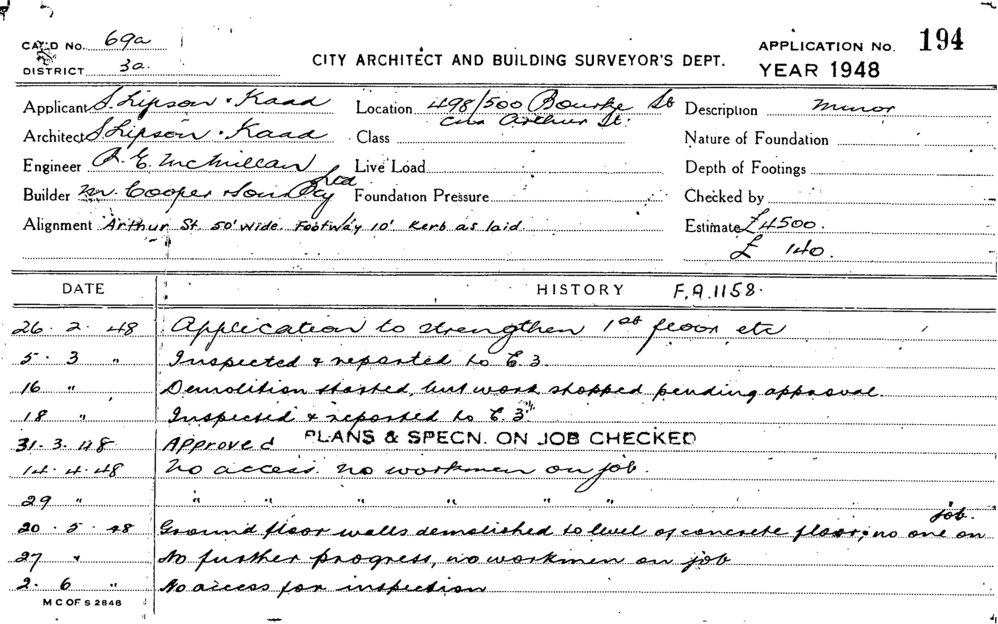 CARD No. 69a
DISTRICT 3a.
CITY ARCHITECT AND BUILDING SURVEYOR'S DEPT.
APPLICATION No. 194
YEAR 1948
Applicant S. Lipson & Kaad
Architect S Lipson & Kaad
Engineer R. E. McMillan
Builder Wm. Cooper & Sons Pty Ltd
Alignment Arthur St. 50' wide. Footway 10' Kerb as laid.
Location 498/500 Bourke St
Cnr Arthur St.
Class
Live Load
Foundation Pressure
Description Minor
Nature of Foundation
Depth of Footings
Checked by
Estimate £4500.
£ 140.
DATE HISTORY F.A.1158.
26. 2. 48 Application to strengthen 1st floor etc
5. 3 " Inspected & reported to C.3.
16 " Demolition started, but work stopped pending approval.
18 " Inspected & reported to C.3
31. 3. 48 Approved PLANS & SPECN. ON JOB CHECKED
14. 4. 48 No access. no workmen on job.
29 " " " " " " "
20. 5. 48 Ground floor walls demolished to level of concrete floor; no one on job.
27 " No further progress, no workmen on job
2. 6 " No access for inspection
M C OF S 2848